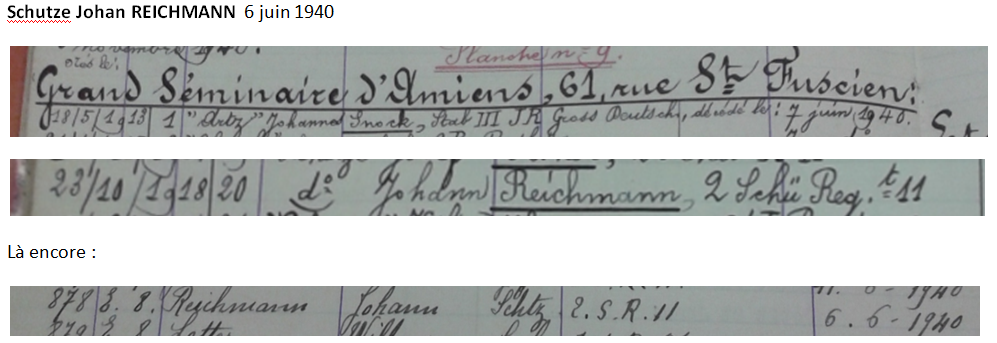 Schutze Johan REICHMANN 6 juin 1940
novembre 1940.
Planche n° 9.
nés le:
Grand Séminaire d'Amiens, 61, rue St Fuscien:
18/5/1913 1 "Artz" Johannes Snock, Stab III J.R Gross Deutsch, décédé le: 7 juin 1940.
23/10/1918 20 do Johann Reichmann, 2 Schü Reg.t 11
Là encore :
878 E. 8. Reichmann Johann Schtz. 2. S. R. 11
6 . 6 - 1940